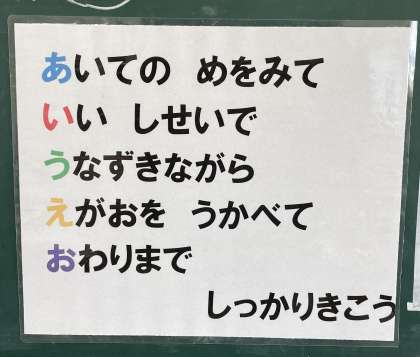 あいての めをみて
いい しせいで
うなずきながら
えがおを うかべて
おわりまで
しっかりきこう